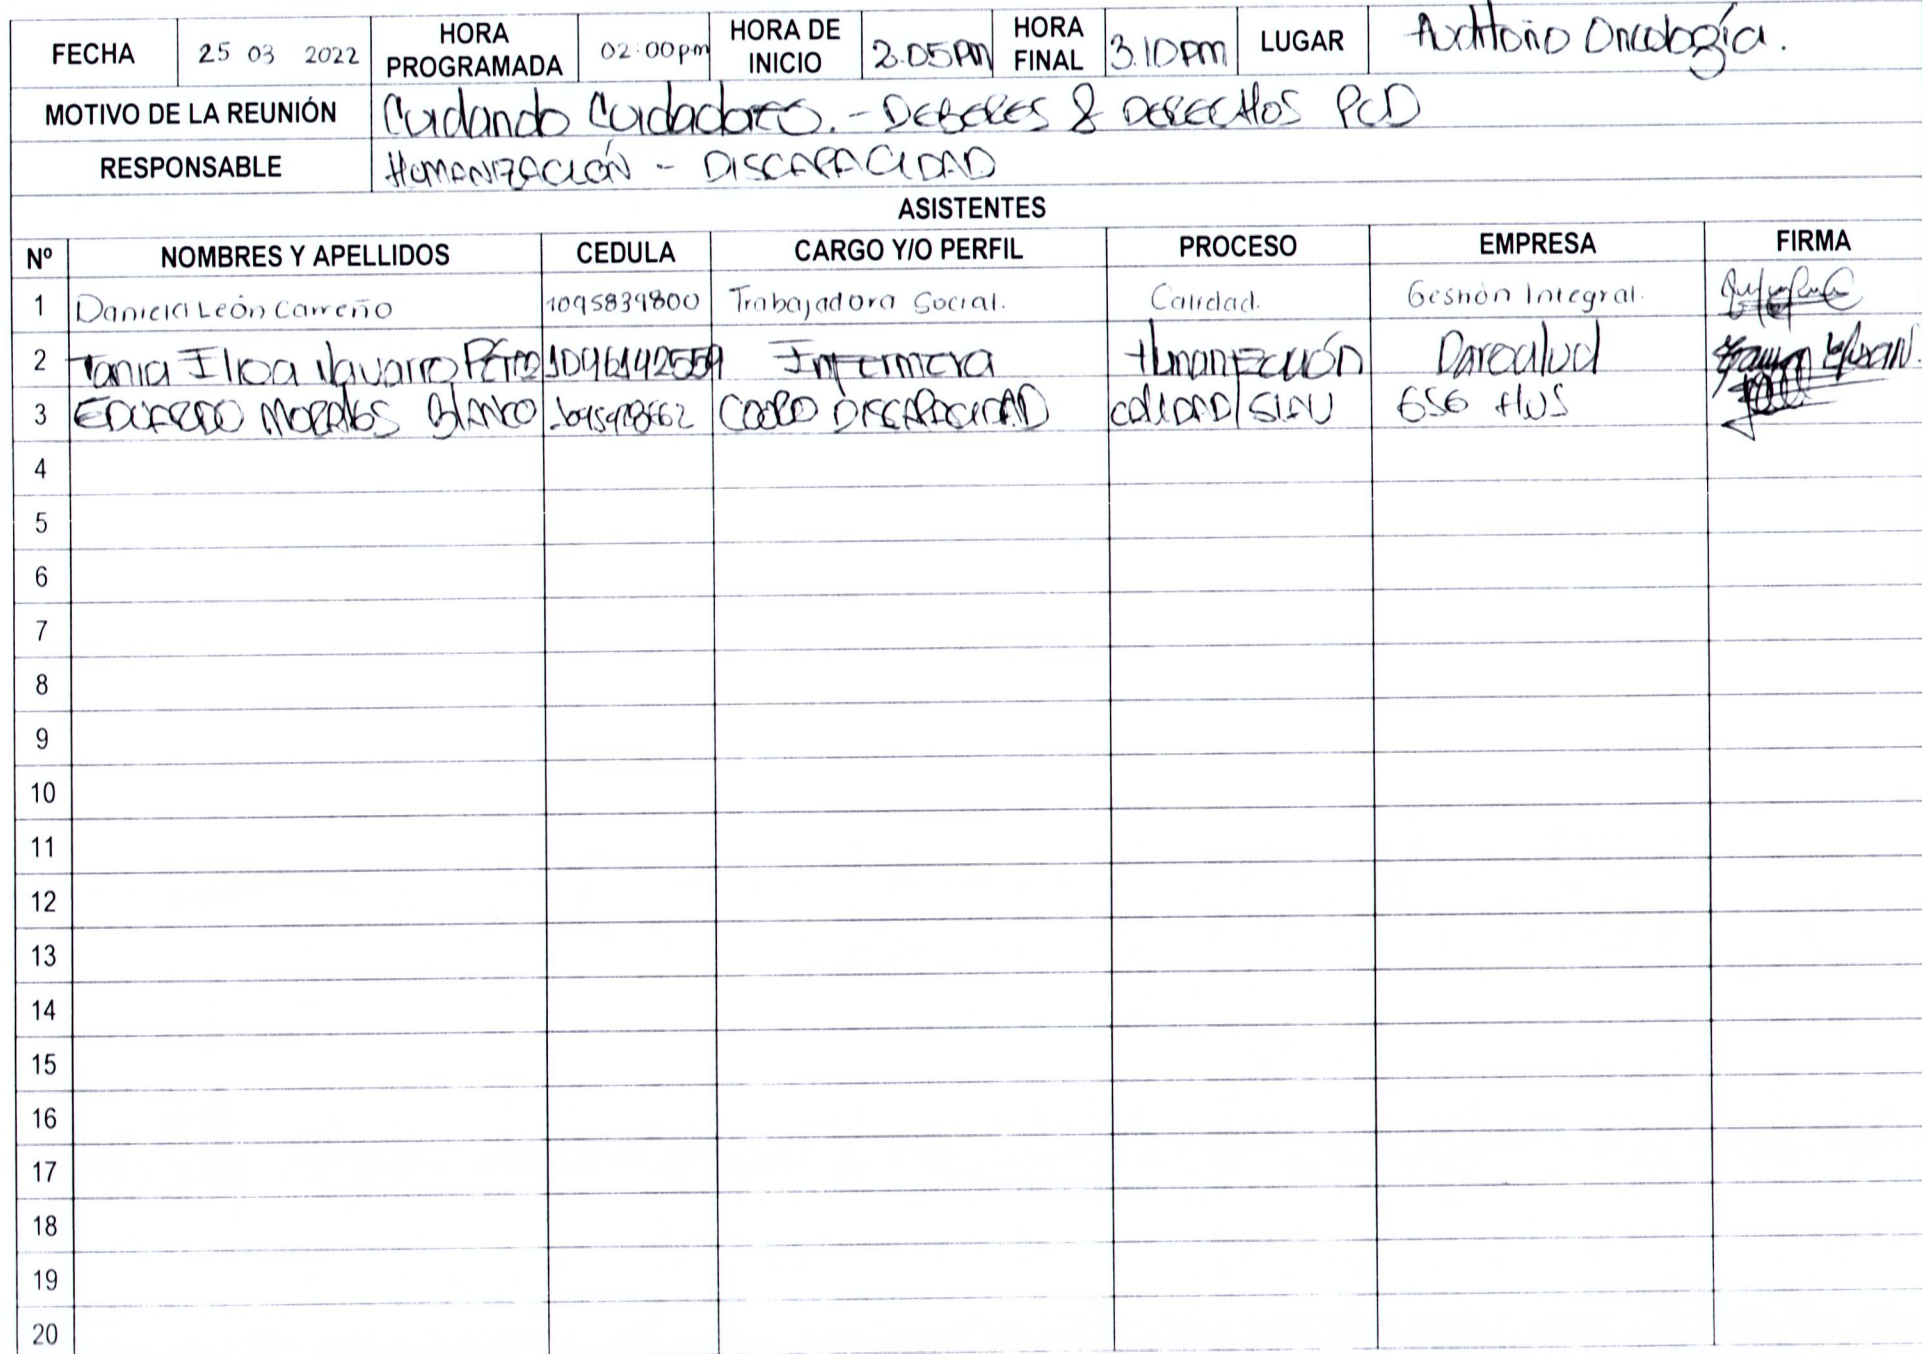 FECHA 25 03 2022 HORA PROGRAMADA 02:00pm HORA DE INICIO 2:05pm HORA FINAL 3:10pm LUGAR Auditorio Oncología.
MOTIVO DE LA REUNIÓN Cuidando Cuidadores. - DEBERES & DERECHOS PCD
RESPONSABLE HUMANIZACIÓN - DISCAPACIDAD
ASISTENTES
Nº NOMBRES Y APELLIDOS CEDULA CARGO Y/O PERFIL PROCESO EMPRESA FIRMA
1 Daniela León Carreño 1095839800 Trabajadora Social. Calidad. Gestión Integral.
2 Tania Navarro Pérez 1096192559 Enfermera Humanización Darsalud
3 EDUARDO MORALES BLANCO COORD DISCAPACIDAD CALIDAD/SIAU HUS
4
5
6
7
8
9
10
11
12
13
14
15
16
17
18
19
20